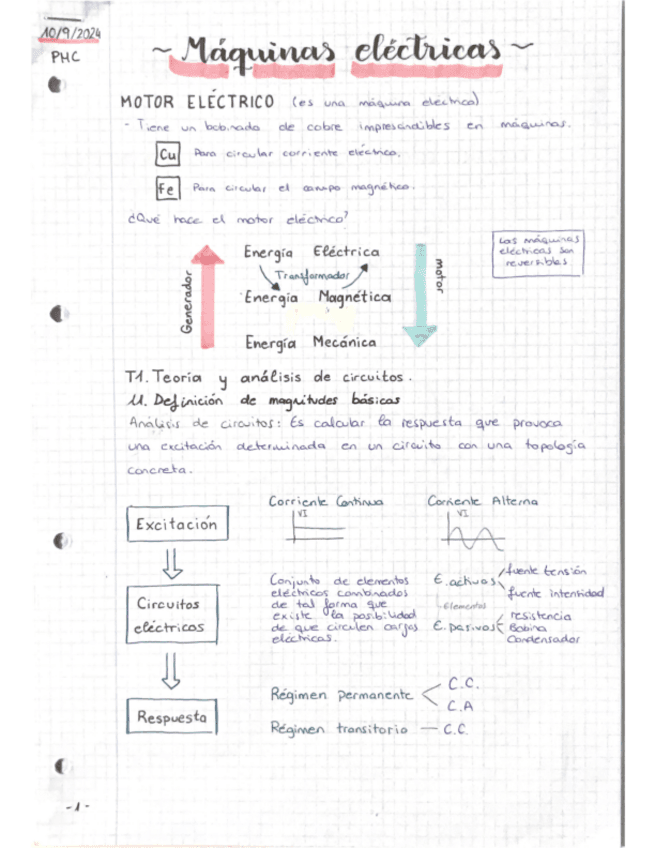 10/9/2024
PHC
~ Máquinas eléctricas ~
MOTOR ELÉCTRICO (es una máquina eléctrica)
- Tiene un bobinado de cobre imprescindibles en máquinas.
Cu Para circular corriente eléctrica.
Fe Para circular el campo magnético.
¿Qué hace el motor eléctrico?
Las máquinas
eléctricas son
reversibles
Generador
Energía Eléctrica
Transformador
Energía Magnética
Energía Mecánica
motor
T1. Teoria y análisis de circuitos.
1.1. Definición de magnitudes básicas
Análisis de circuitos: Es calcular la respuesta que provoca
una excitación determinada en un circuito con una topología
concreta.
Excitación
Corriente Continua
VI
Corriente Alterna
VI
Circuitos
eléctricos
Conjunto de elementos
eléctricos combinados
de tal forma que
existe la posibilidad
de que circulen cargas
eléctricas.
E. activos
fuente tensión
fuente intensidad
Elementos
E. pasivos
resistencia
Bobina
Condensador
Respuesta
Régimen permanente
C.C.
C.A
Régimen transitorio — C.C.
-1-